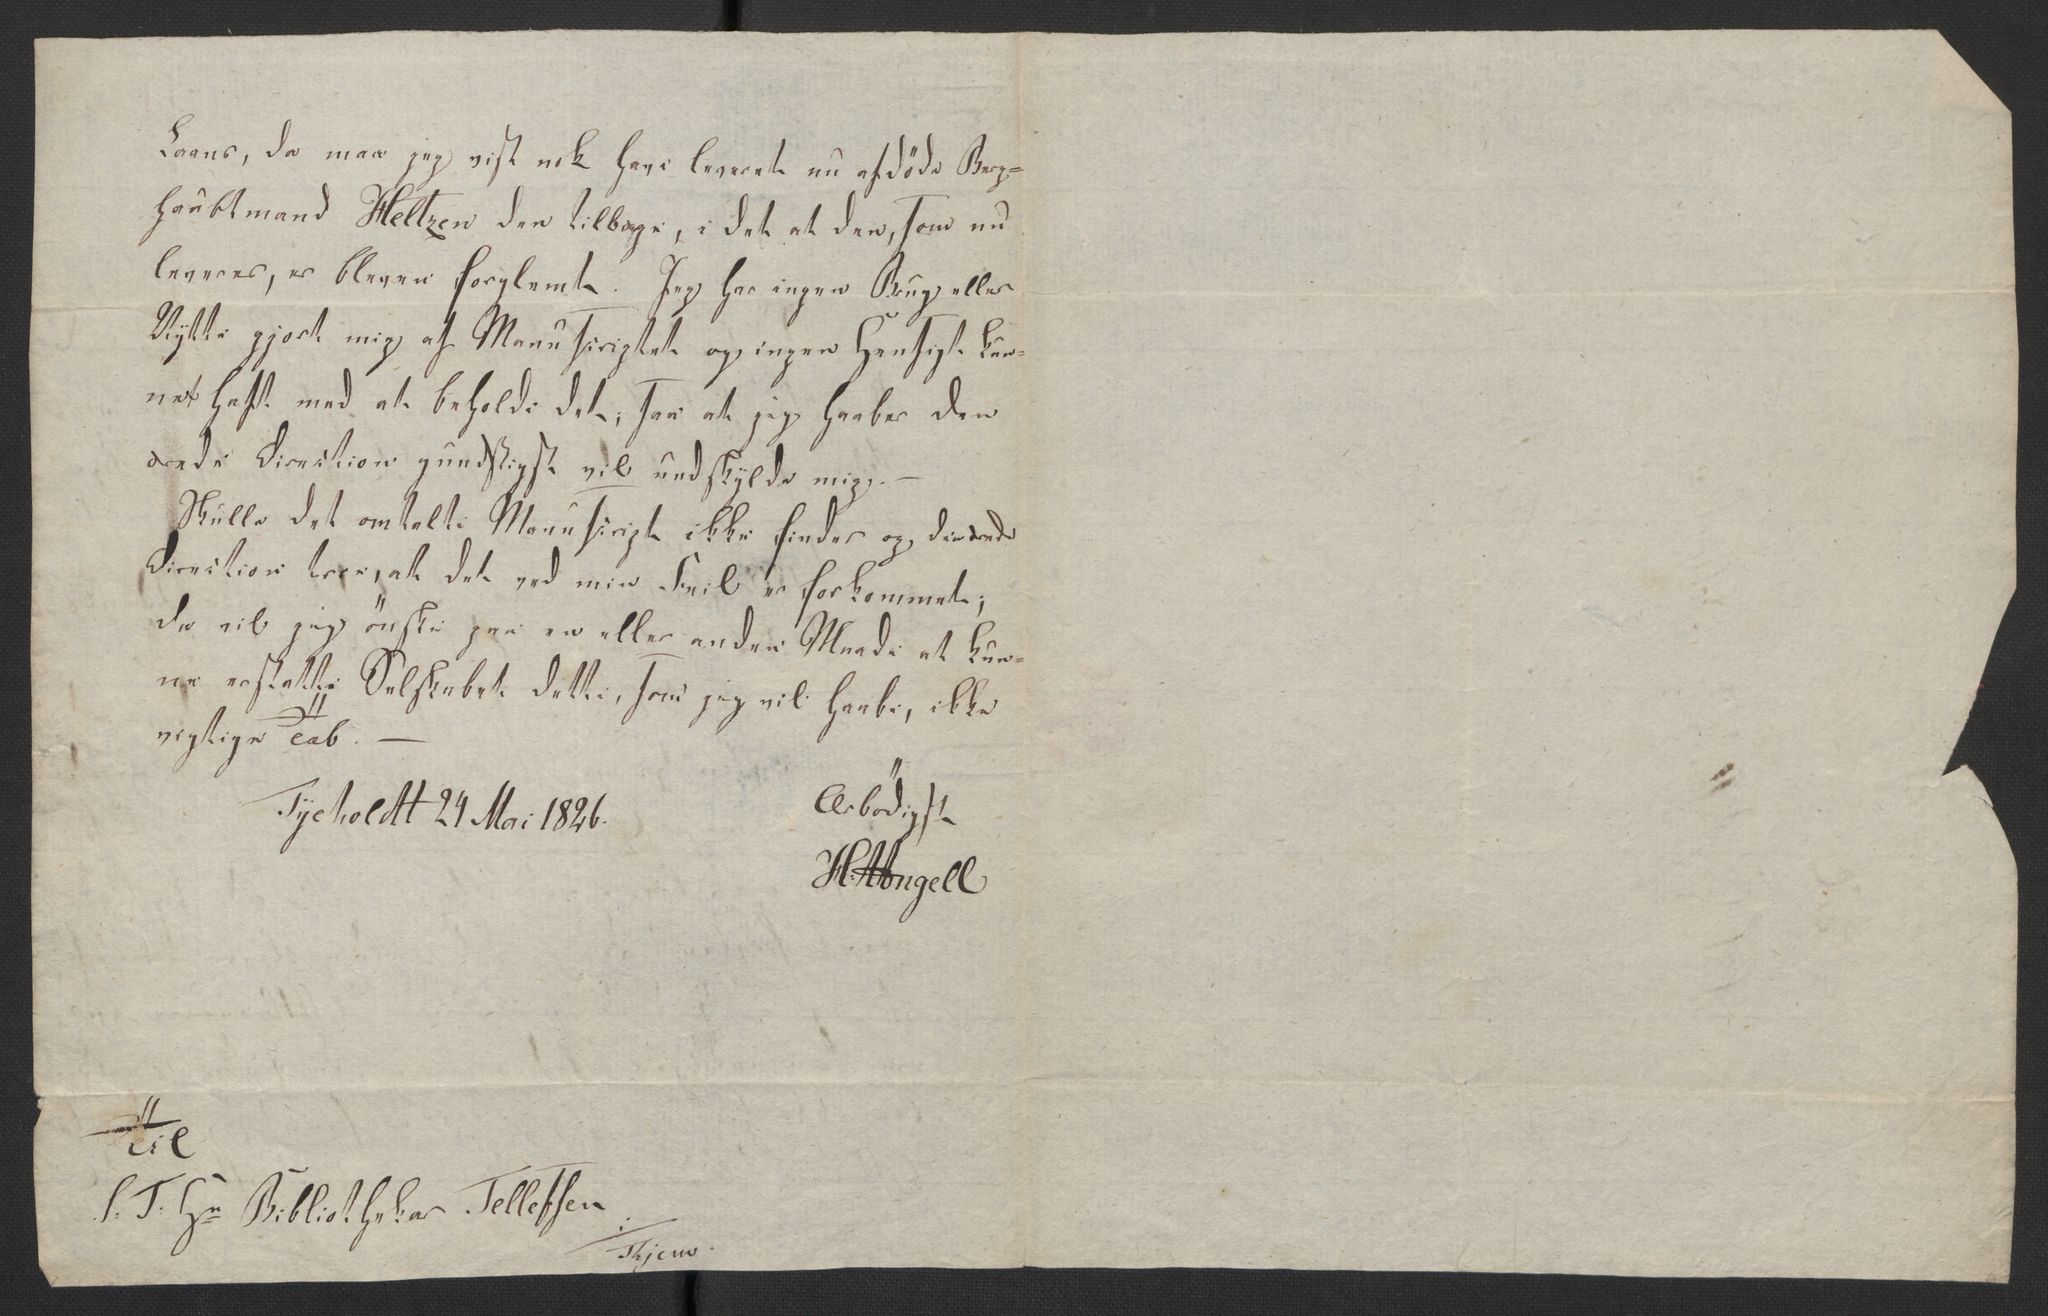 Laans, da maa jeg vist nok have leveret nu afdöde Berg=
haubtmand Heltzen den tilbage, i det at den, som nu
leveres, er bleven forglemt. Jeg har ingen Brug eller
Nytte gjort mig af Manuscriptet og ingen Hensigt kun=
net haft med at beholde det; saa at jeg haaber den
ærede Direction gundstigst vil undskylde mig. —
Skulle det omtalte Manuscript ikke findes og den ærede
Direction troe, at det ved min Feil er forkommet;
da vil jeg önske paa en eller anden Maade at kun=
ne erstatte Selskabet dette, som jeg vil haabe, ikke
vigtige Tab. —
Tyeholdt 24 Mai 1826.
Ærbödigst
H. Angell
Til
S. T. Hr Bibliothekar Tellefsen